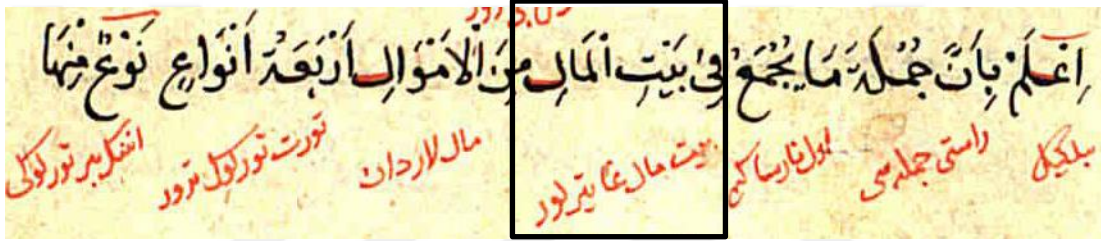 اِعْلَمْ بِاَنَّ جُمْلَةَ مَا يُجْمَعُ فِى بَيْتِ الْمَالِ مِنَ الْاَمْوَالِ اَرْبَعَةُ اَنْوَاعٍ نَوْعٌ مِنْهَا
بلكيل راستى جمله سى اول نارسا كيم بيت مال غا يترلور مال لاردان تورت تورلوك ترور بير تورلوكى